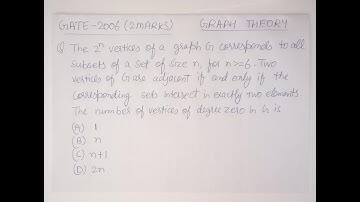 GATE-2006 (2MARKS) GRAPH THEORY
Q The 2ⁿ vertices of a graph G corresponds to all
subsets of a set of size n, for n>=6. Two
vertices of G are adjacent if and only if the
corresponding sets intersect in exactly two elements.
The number of vertices of degree zero in G is
(A) 1
(B) n
(C) n+1
(D) 2n